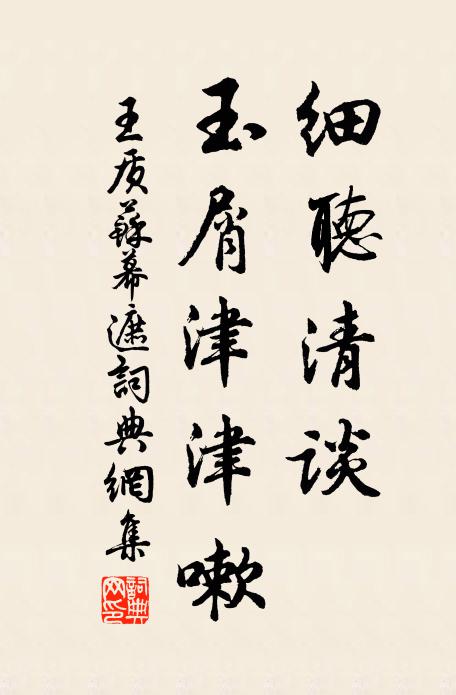 細聽清談
玉屑津津嗽
王质蘇幕遮詞典網集
詞典网印